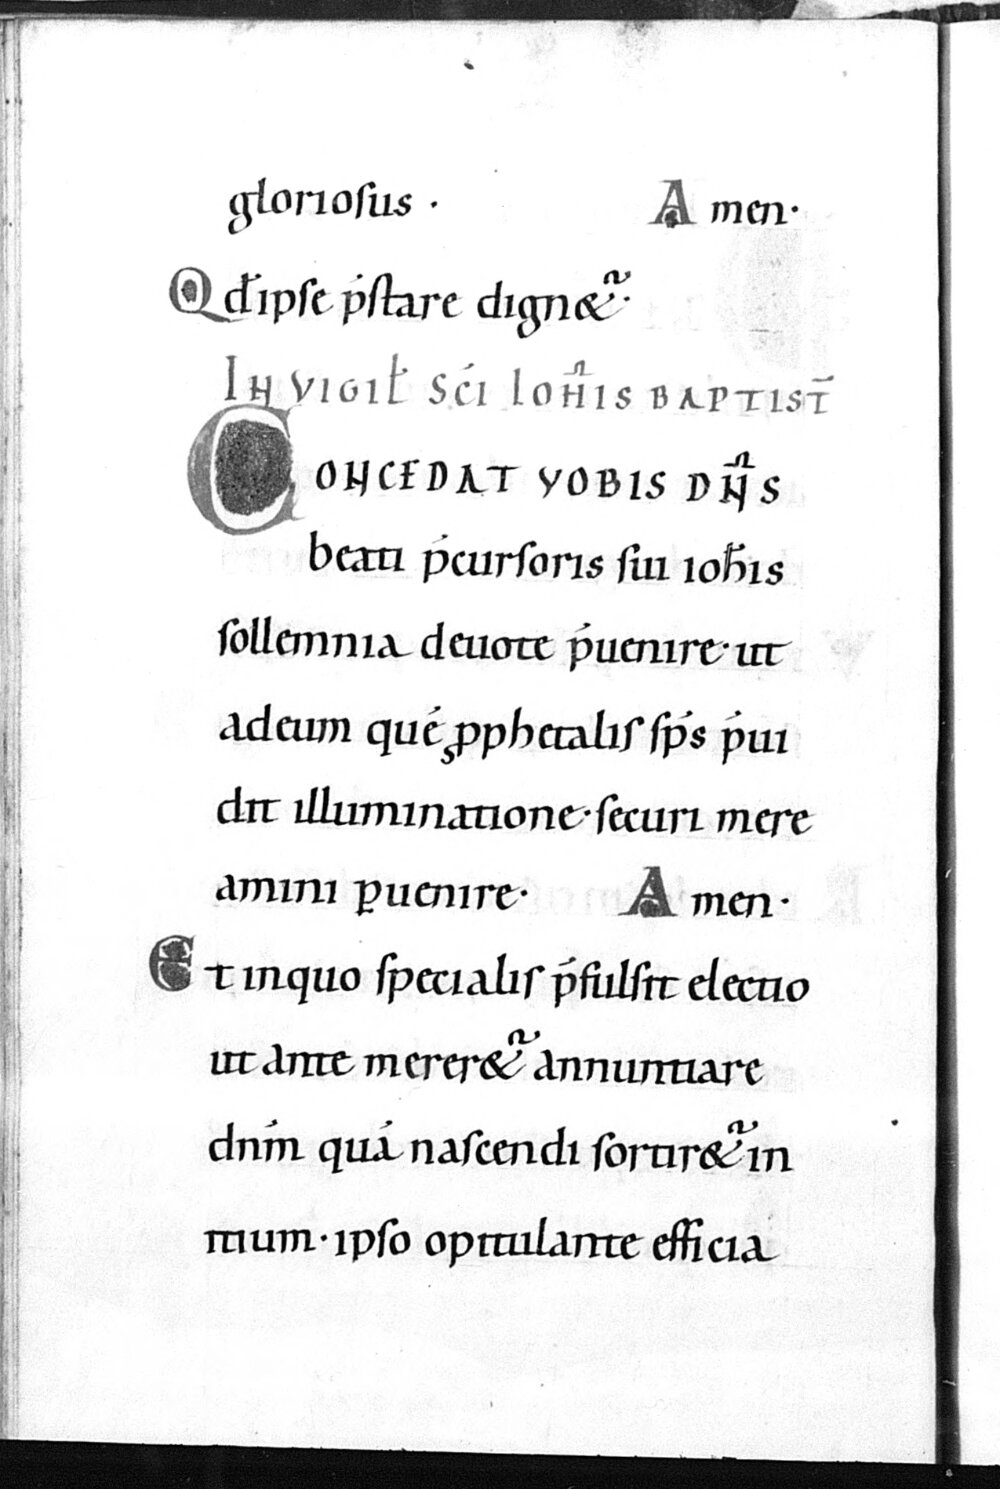 gloriosus · Amen·
Qđ ipse p̍stare dign&̃·
IN VIGIŁ SC̄I IOH̄IS BAPTIST̄
CONCEDAT VOBIS DN̄S
beati p̍cursoris sui ioħis
sollemnia deuote p̍uenire· ut
adeum qué ꝓphetalis sp̄s p̍ui
dit illuminatione· securi mere
amini ꝑuenire· Amen·
Et inquo specialis p̍fulsit electio
ut ante merer&̃ annuntiare
dnm̄ quá nascendi sortir&̃ in
itium· ipso opitulante efficia